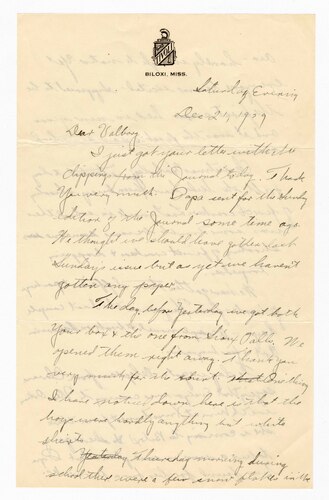 BILOXI, MISS.
Saturday Evening
Dec 21, 1929
Dear Valborg
I just got your letter with the
clipping from the Journal today. Thank
You very much. Papa sent for the Sunday
edition of the Journal some time ago.
He thought we should have gotten last
Sundays issue but as yet we haven't
gotten any paper.
The day before Yesterday we got both
Your box & the one from Sioux Falls. We
opened them right away. Thank you
very much for the shirt. One thing
I have noticed down here is that the
boys wear hardly anything but white
shirts.
Yesterday Thursday morning during
school there were a few snow flakes in the